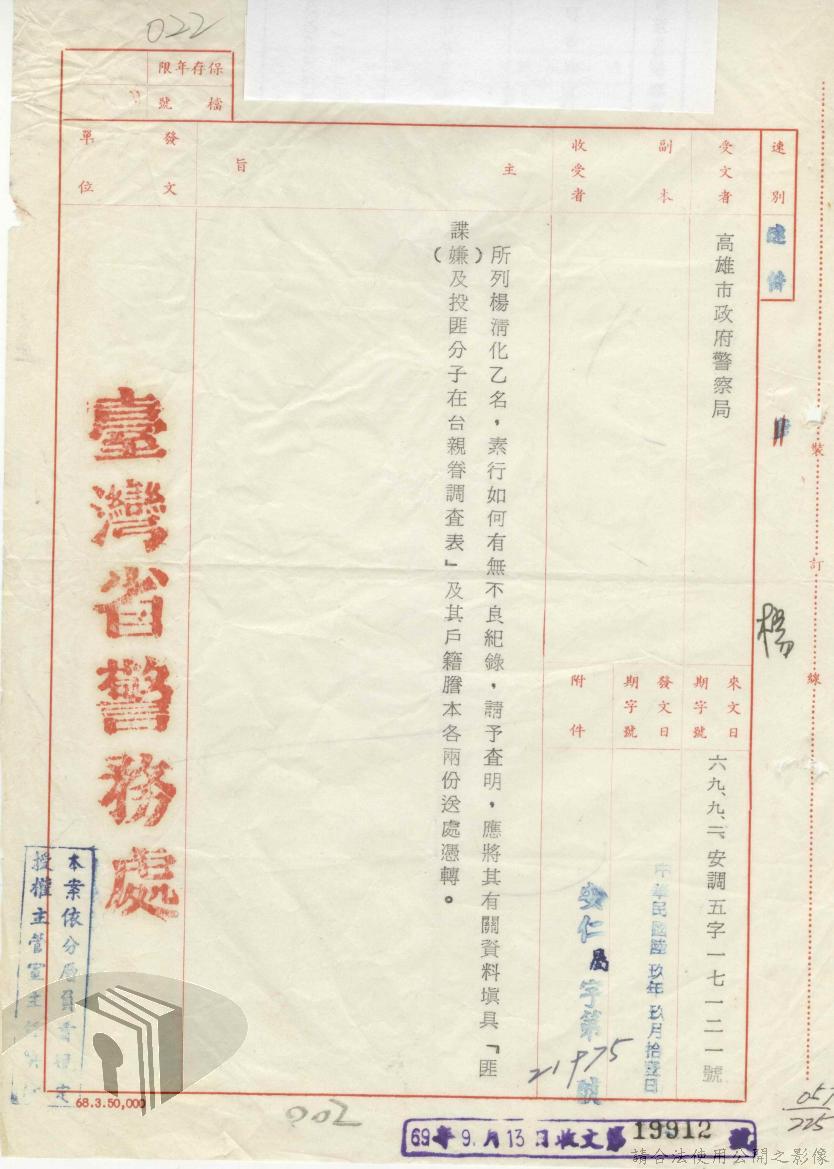 022
保存年限
檔號
速別
速件
受文者
高雄市政府警察局
副本
收受者
來文日期字號
六九、九、二、安調五字一七一二一號
發文日期字號
中華民國陸玖年玖月拾壹日
安仁局字第 號
21975
附件
主旨
所列楊淸化乙名，素行如何有無不良紀錄，請予查明，應將其有關資料塡具「匪
（ ）
諜嫌及投匪分子在台親眷調查表」及其戶籍謄本各兩份送處憑轉。
發文單位
臺灣省警務處
本案依分層負責規定
授權主管室主
裝
訂
線
楊
68.3.50,000
002
69年9.月13日收文第19912號
051
225
請合法使用公開之影像